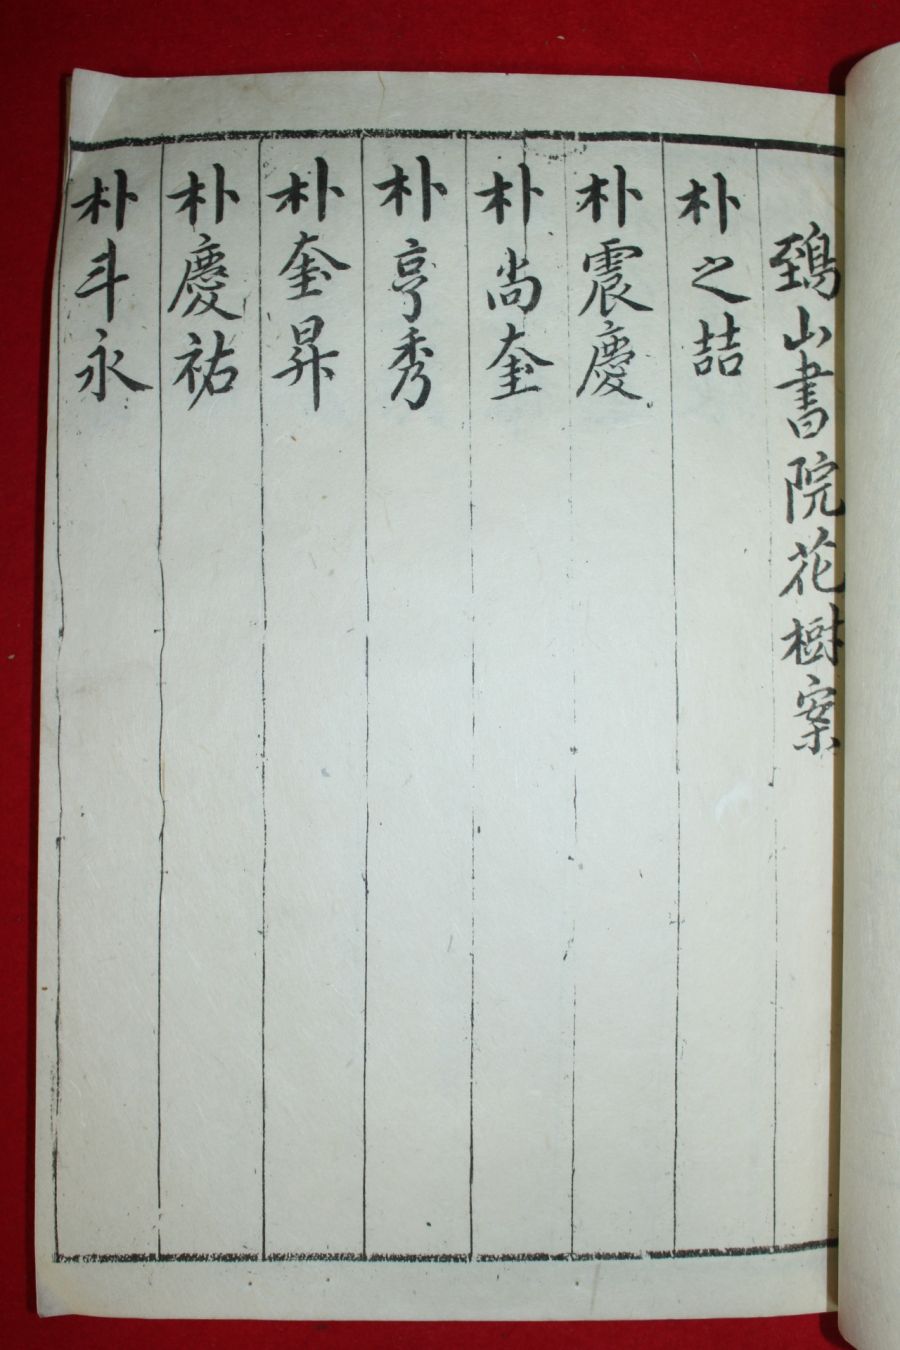 鵄山書院花樹案
朴之喆
朴震慶
朴尚奎
朴亨秀
朴奎昇
朴慶祐
朴斗永